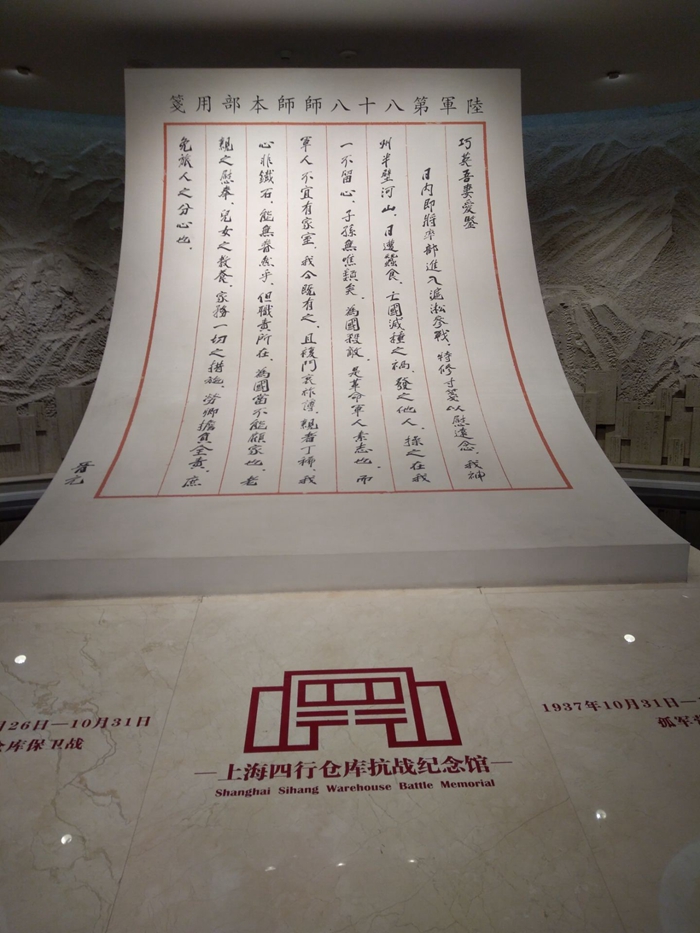 陸軍第八十八師師本部用箋
巧英吾妻愛鑒
日內即將率部進入滬淞參戰，特修寸箋以慰遠念，我神
州半壁河山，日遭蠶食，亡國滅種之禍，發之他人，操之在我
一不留心，子孫無噍類矣，為國殺敵，是革命軍人素志也，而
軍人不宜有家室，我今既有之，且後門衰祚薄，親者丁稀，我
心非鐵石，能無眷然乎，但職責所在，為國當不能顧家也，老
親之慰奉，兒女之教養，家務一切之措施，勞卿擔負全責，庶
免旅人之分心也，
晉元
月26日—10月31日
仓库保卫战
上海四行仓库抗战纪念馆
Shanghai Sihang Warehouse Battle Memorial
1937年10月31日—
孤军